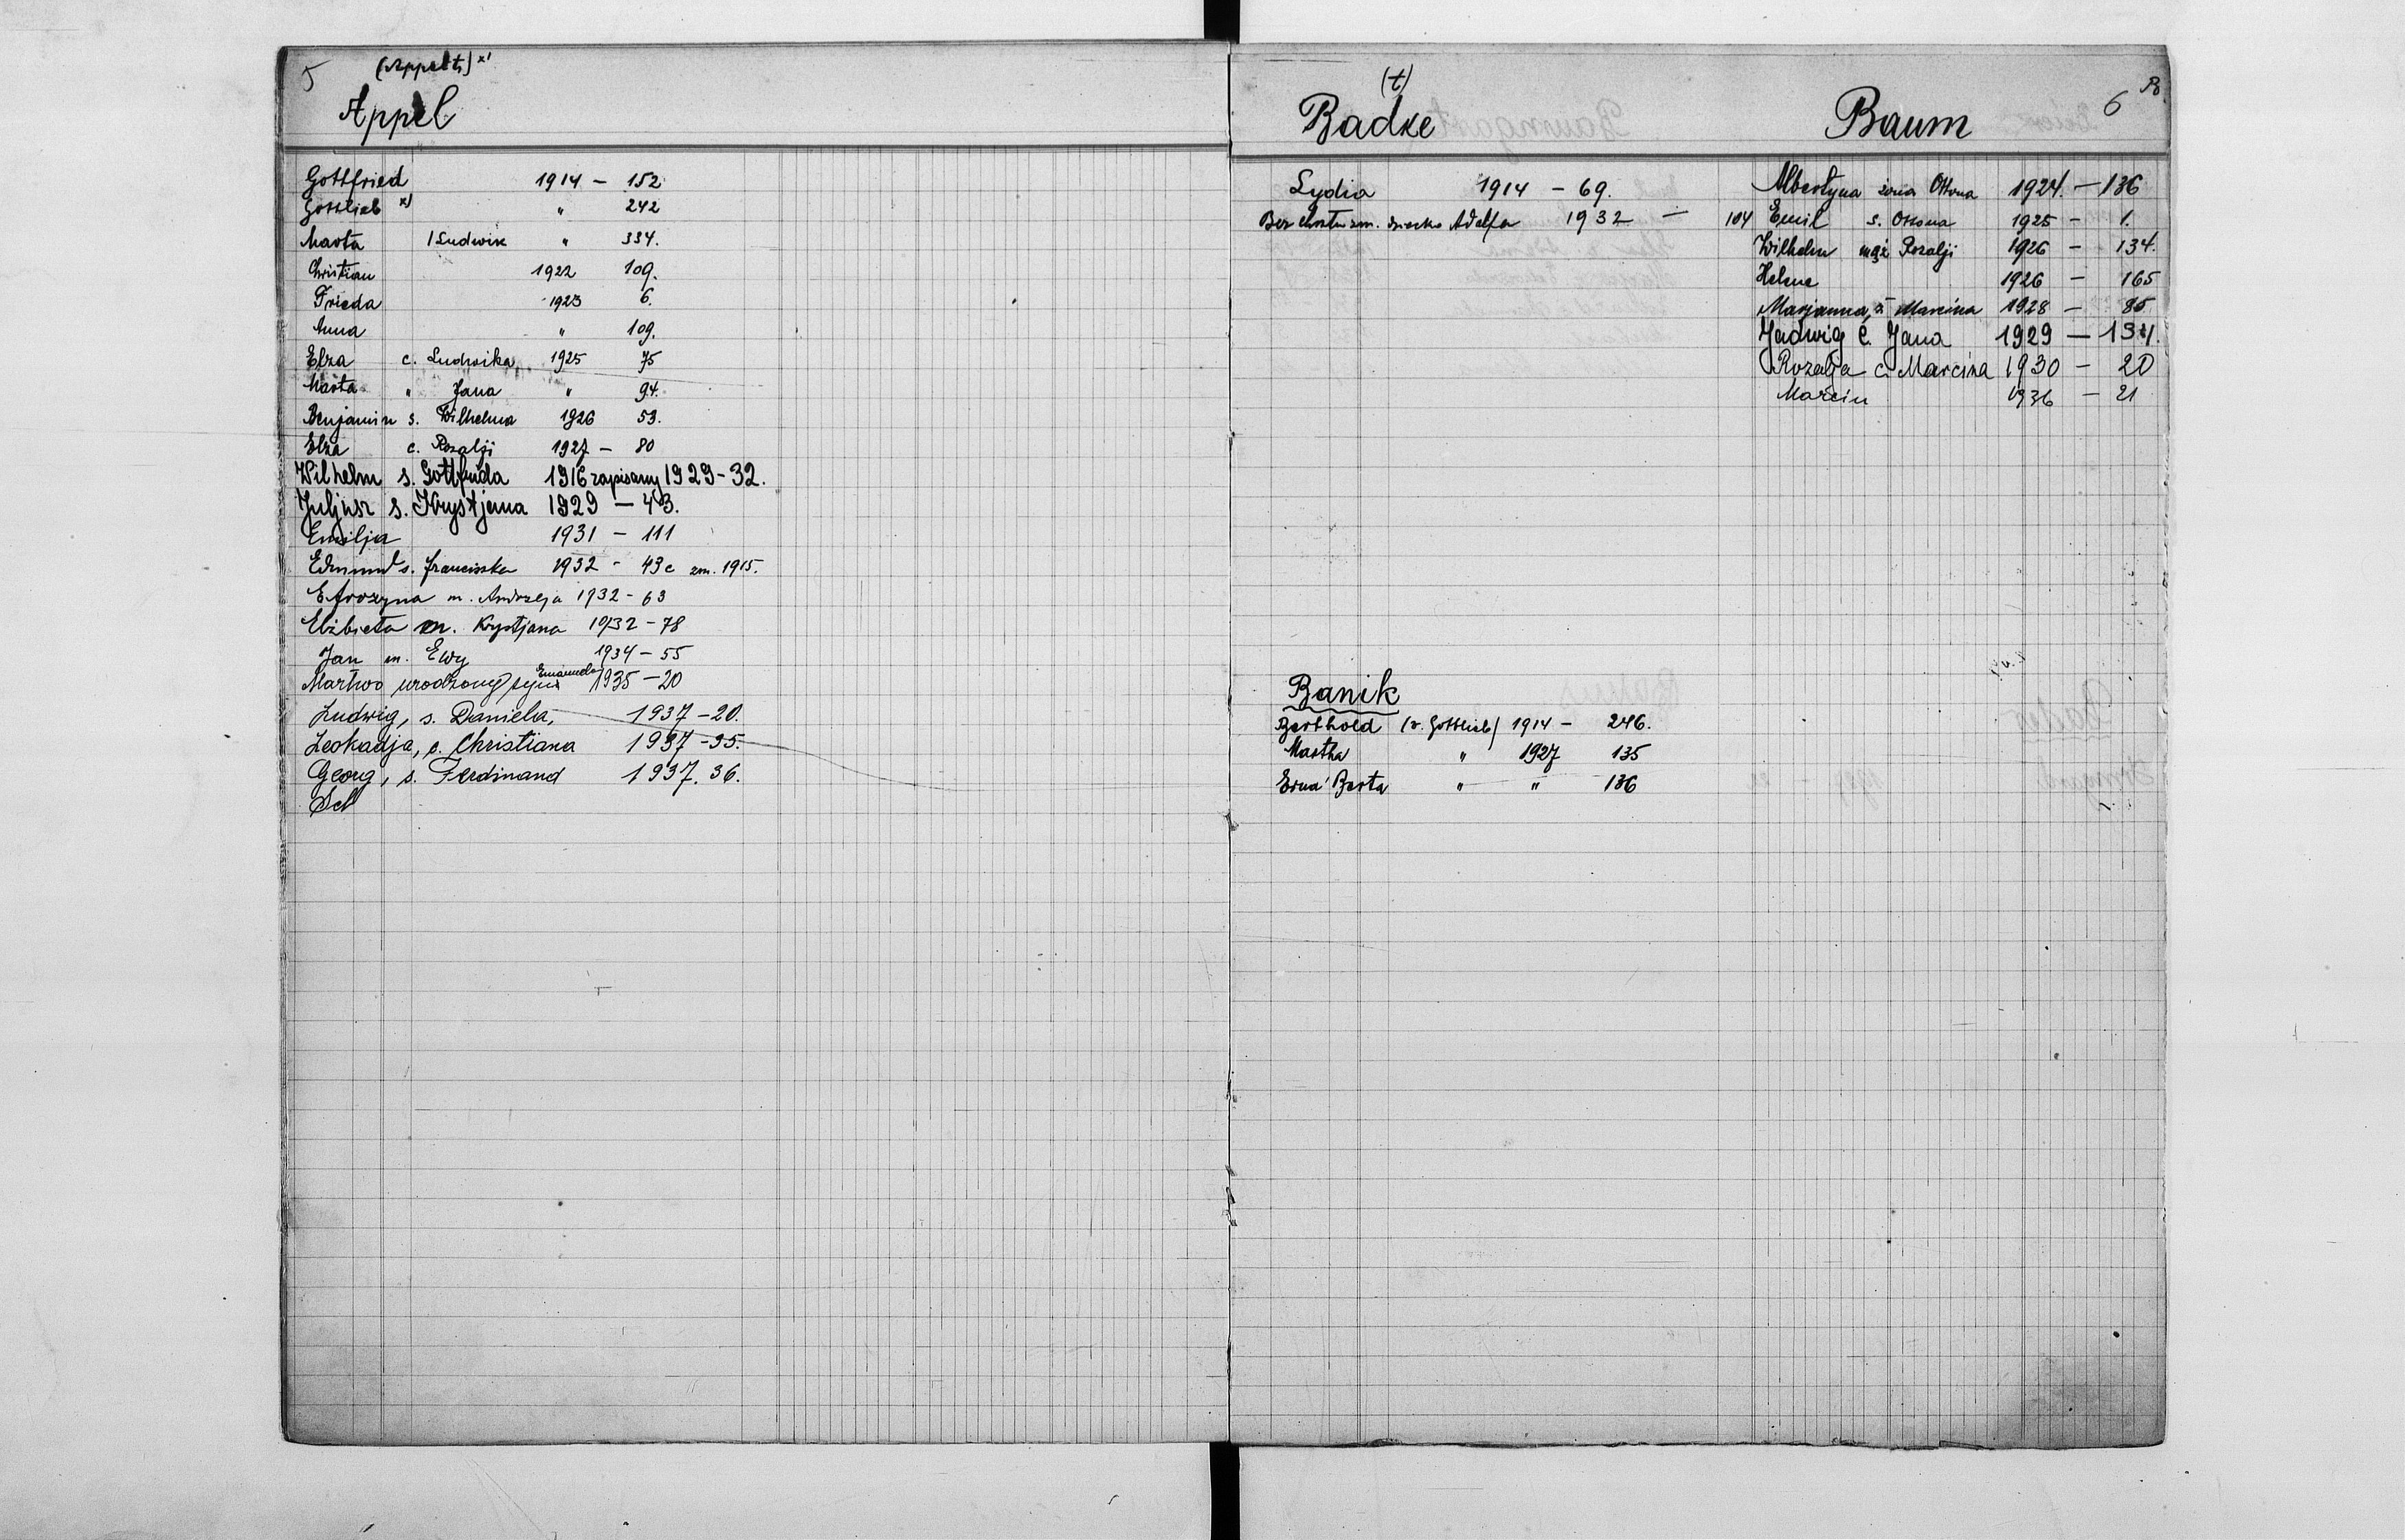 5
(Appelt) x)
Appel
Gottfried 1914 - 152
Gottlieb x) " 242
Marta / Ludwik " 334.
Christian 1922 109.
Frieda 1923 6.
Anna " 109.
Elza c. Ludwika 1925 75
Marta " Jana " 94.
Benjamin s. Wilhelma 1926 53.
Elza c. Rozalji 1927 - 80
Wilhelm s. Gottfrida 1916 zapisany 1929 - 32.
Juljusz s. Krystjana 1929 - 43.
Emilja 1931 - 111
Edmund s. Franciszka 1932 - 43c zm. 1915.
Efrozyna m. Andrzeja 1932 - 63
Elżbieta m. Krystjana 1932 - 78
Jan m. Ewy 1934 - 55
Martwo urodzony syn Emanuela 1935 - 20
Ludwig, s. Daniela, 1937 - 20.
Leokadja, c. Christiana 1937 - 35.
Georg, s. Ferdinand 1937. 36.
(t)
Badke
Lydia 1914 - 69.
Bez chrztu zm. dziecko Adolfa 1932 - 104
Banik
Berthold (v. Gottlieb) 1914 - 246.
Martha " 1927 135
Erna Berta " " 136
6
B.
Baum
Albertyna żona Ottona 1924. - 136
Emil s. Ottona 1925 - 1.
Wilhelm mąż Rozalji 1926 - 134.
Helene 1926 - 165
Marjanna, ż Marcina 1928 - 85
Jadwig c. Jana 1929 - 134.
Rozalja c. Marcina 1930 - 20
Marcin 1936 - 21